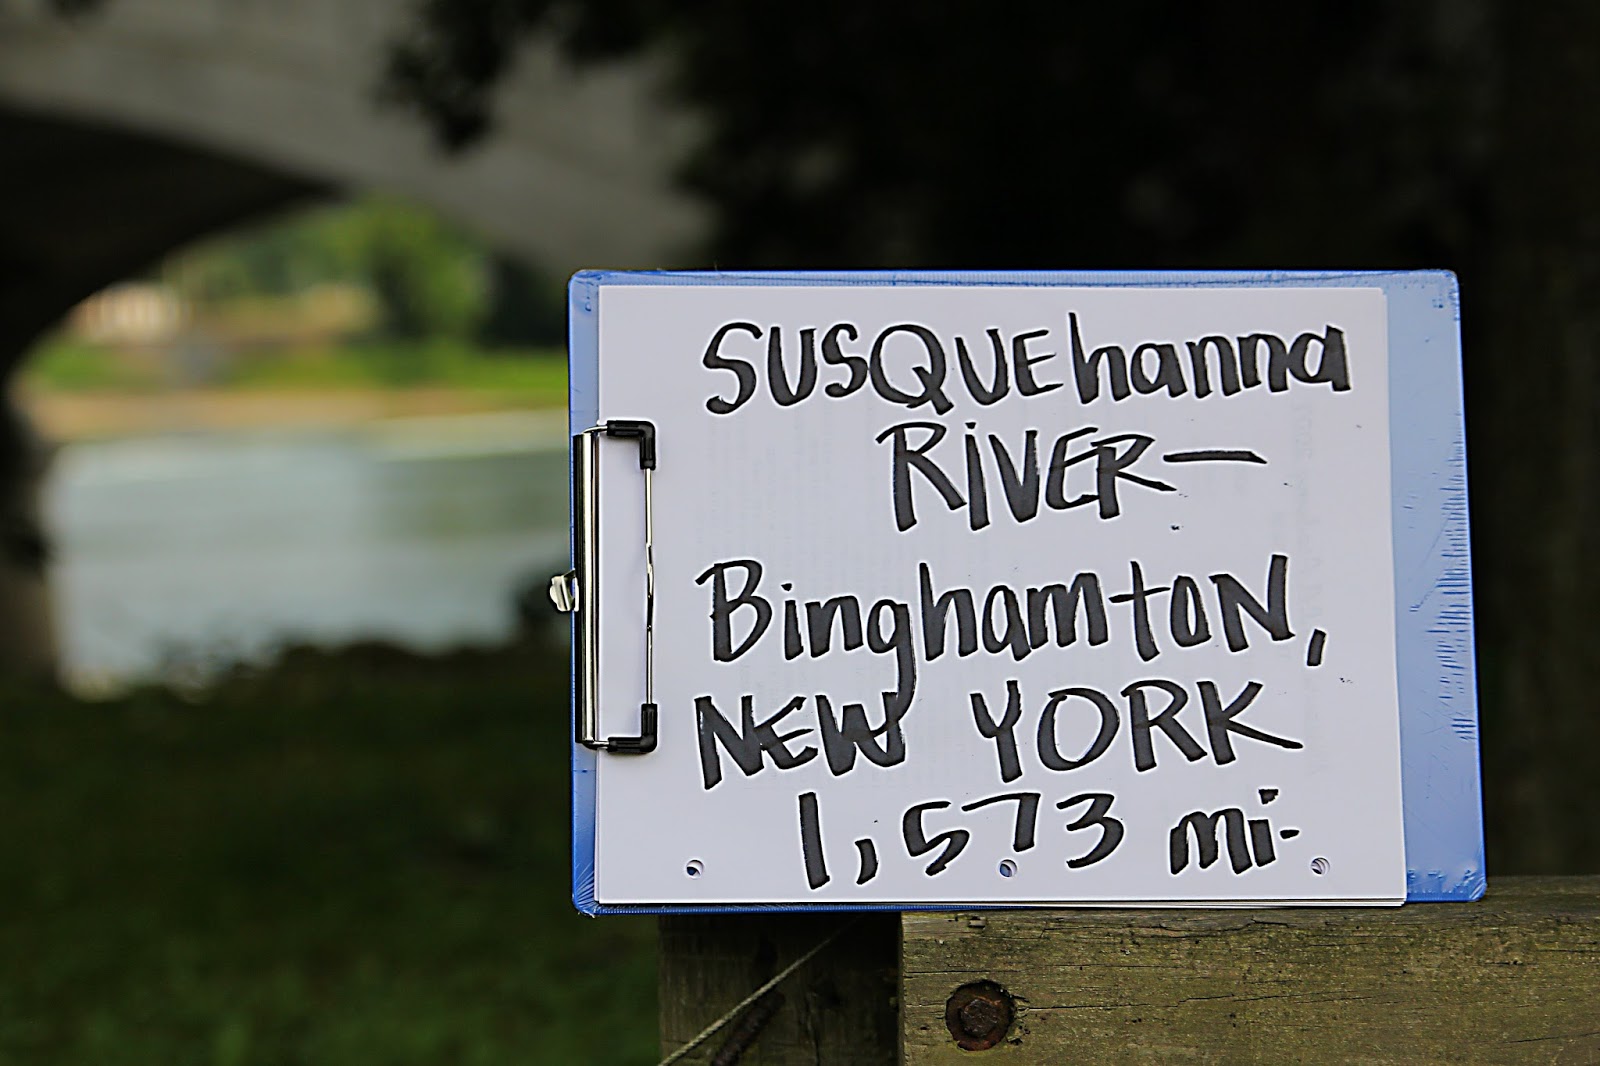 SUSQUEhanna
RiVER—
BinghamtoN,
NEW YORK
1,573 mi.